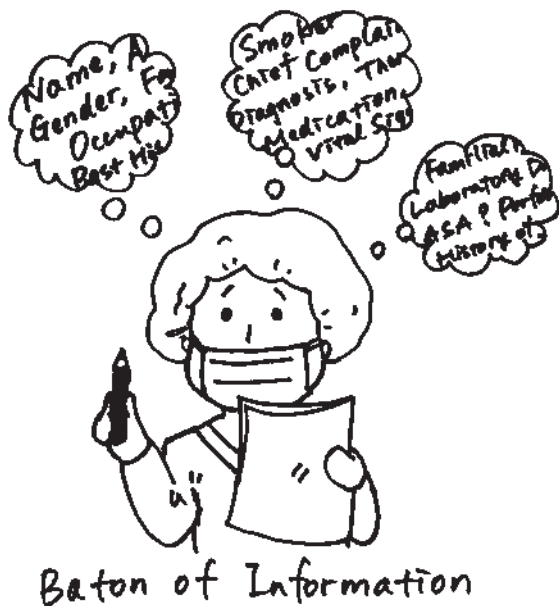 Name, A
Gender, Fa
Occupati
Past His
Smoker
Chief Complain
Diagnosis, Ther
Medication,
Vital Sign
Familial
Laboratory D
ASA? Perfor
History of
Baton of Information